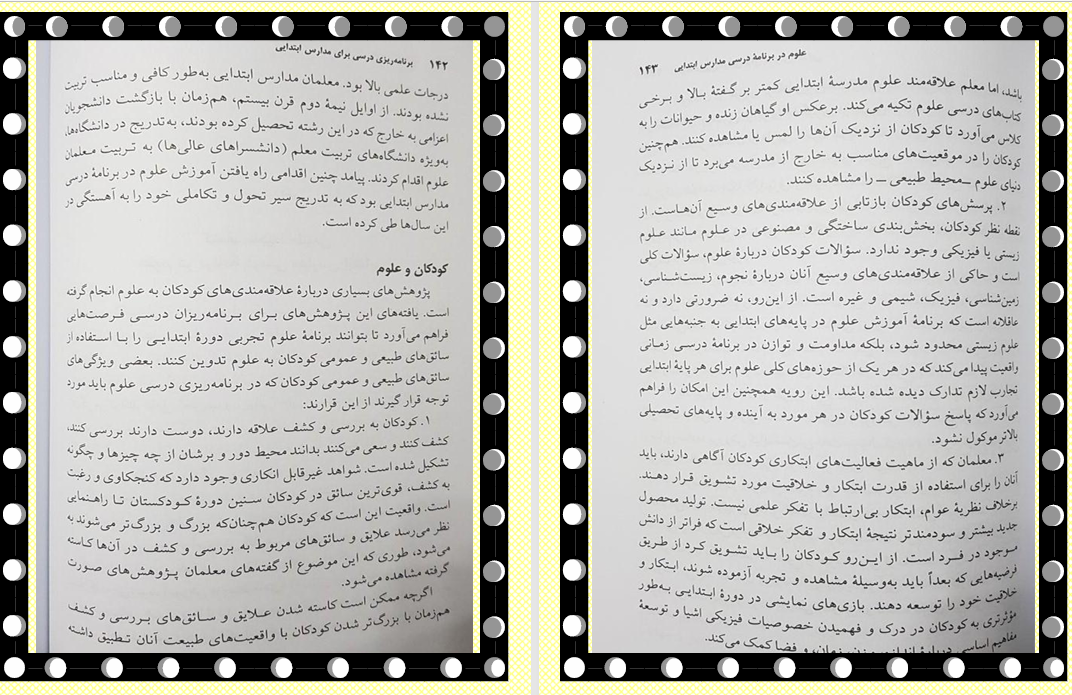 ۱۴۲ برنامه‌ریزی درسی برای مدارس ابتدایی
درجات علمی بالا بود. معلمان مدارس ابتدایی به‌طور کافی و مناسب تربیت
نشده بودند. از اوایل نیمهٔ دوم قرن بیستم، هم‌زمان با بازگشت دانشجویان
اعزامی به خارج که در این رشته تحصیل کرده بودند، به‌تدریج در دانشگاه‌ها،
به‌ویژه دانشگاه‌های تربیت معلم (دانشسراهای عالی‌ها) به تربیت معلمان
علوم اقدام کردند. پیامد چنین اقدامی راه یافتن آموزش علوم در برنامهٔ درسی
مدارس ابتدایی بود که به تدریج سیر تحول و تکاملی خود را به آهستگی در
این سال‌ها طی کرده است.
کودکان و علوم
پژوهش‌های بسیاری دربارهٔ علاقه‌مندی‌های کودکان به علوم انجام گرفته
است. یافته‌های این پژوهش‌های برای برنامه‌ریزان درسی فرصت‌هایی
فراهم می‌آورد تا بتوانند برنامهٔ علوم تجربی دورهٔ ابتدایی را با استفاده از
سائق‌های طبیعی و عمومی کودکان به علوم تدوین کنند. بعضی ویژگی‌های
سائق‌های طبیعی و عمومی کودکان که در برنامه‌ریزی درسی علوم باید مورد
توجه قرار گیرند از این قرارند:
۱. کودکان به بررسی و کشف علاقه دارند، دوست دارند بررسی کنند،
کشف کنند و سعی می‌کنند بدانند محیط دور و برشان از چه چیزها و چگونه
تشکیل شده است. شواهد غیرقابل انکاری وجود دارد که کنجکاوی و رغبت
به کشف، قوی‌ترین سائق در کودکان سنین دورهٔ کودکستان تا راهنمایی
است. واقعیت این است که کودکان هم‌چنان‌که بزرگ و بزرگ‌تر می‌شوند به
نظر می‌رسد علایق و سائق‌های مربوط به بررسی و کشف در آن‌ها کاسته
می‌شود، طوری که این موضوع از گفته‌های معلمان پژوهش‌های صورت
گرفته مشاهده می‌شود.
اگرچه ممکن است کاسته شدن علایق و سائق‌های بررسی و کشف
هم‌زمان با بزرگ‌تر شدن کودکان با واقعیت‌های طبیعت آنان تطبیق داشته
علوم در برنامهٔ درسی مدارس ابتدایی ۱۴۳
باشد، اما معلم علاقه‌مند علوم مدرسهٔ ابتدایی کمتر بر گفتهٔ بالا و برخی
کتاب‌های درسی علوم تکیه می‌کند. برعکس او گیاهان زنده و حیوانات را به
کلاس می‌آورد تا کودکان از نزدیک آن‌ها را لمس یا مشاهده کنند. هم‌چنین
کودکان را در موقعیت‌های مناسب به خارج از مدرسه می‌برد تا از نزدیک
دنیای علوم ــ محیط طبیعی ــ را مشاهده کنند.
۲. پرسش‌های کودکان بازتابی از علاقه‌مندی‌های وسیع آن‌هاست. از
نقطه نظر کودکان، بخش‌بندی ساختگی و مصنوعی در علوم مانند علوم
زیستی یا فیزیکی وجود ندارد. سؤالات کودکان دربارهٔ علوم، سؤالات کلی
است و حاکی از علاقه‌مندی‌های وسیع آنان دربارهٔ نجوم، زیست‌شناسی،
زمین‌شناسی، فیزیک، شیمی و غیره است. از این‌رو، نه ضرورتی دارد و نه
عاقلانه است که برنامهٔ آموزش علوم در پایه‌های ابتدایی به جنبه‌هایی مثل
علوم زیستی محدود شود، بلکه مداومت و توازن در برنامهٔ درسی زمانی
واقعیت پیدا می‌کند که در هر یک از حوزه‌های کلی علوم برای هر پایهٔ ابتدایی
تجارب لازم تدارک دیده شده باشد. این رویه همچنین این امکان را فراهم
می‌آورد که پاسخ سؤالات کودکان در هر مورد به آینده و پایه‌های تحصیلی
بالاتر موکول نشود.
۳. معلمان که از ماهیت فعالیت‌های ابتکاری کودکان آگاهی دارند، باید
آنان را برای استفاده از قدرت ابتکار و خلاقیت مورد تشویق قرار دهند.
برخلاف نظریهٔ عوام، ابتکار بی‌ارتباط با تفکر علمی نیست. تولید محصول
جدید بیشتر و سودمندتر نتیجهٔ ابتکار و تفکر خلاقی است که فراتر از دانش
موجود در فرد است. از این‌رو کودکان را باید تشویق کرد از طریق
فرضیه‌هایی که بعداً باید به‌وسیلهٔ مشاهده و تجربه آزموده شوند، ابتکار و
خلاقیت خود را توسعه دهند. بازی‌های نمایشی در دورهٔ ابتدایی به‌طور
مؤثرتری به کودکان در درک و فهمیدن خصوصیات فیزیکی اشیا و توسعهٔ
مفاهیم اساسی دربارهٔ اندازه، وزن، زمان، و فضا کمک می‌کند.